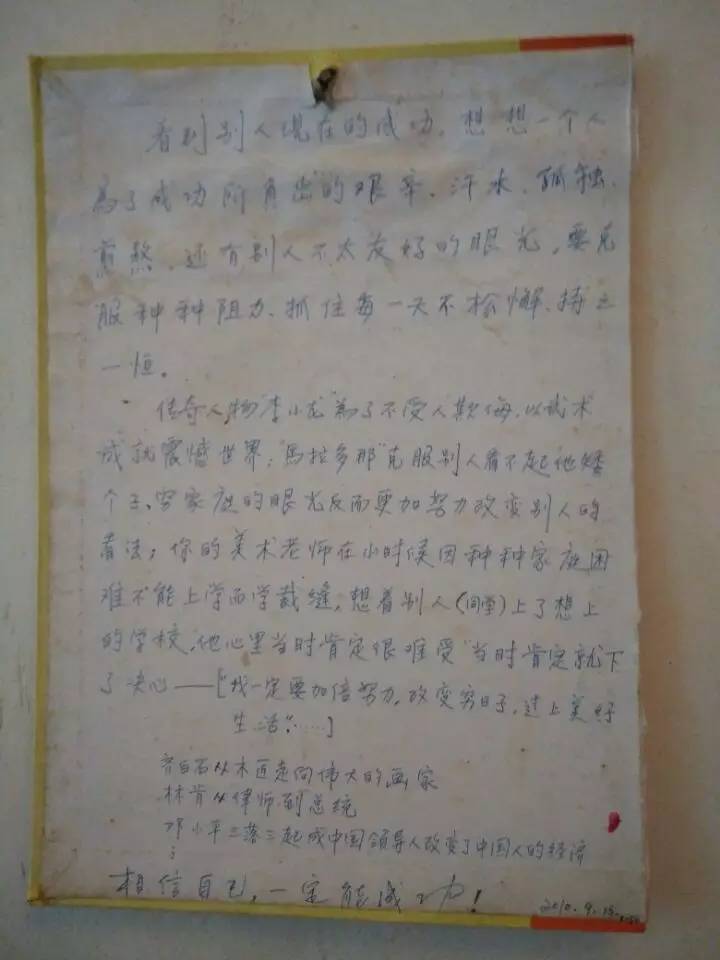 看到别人现在的成功，想想一个人
為了成功所负出的艰辛、汗水、孤独、
煎熬，还有别人不太友好的眼光，要克
服种种阻力、抓住每一天不松懈、持之
一恒。
传奇人物"李小龙"為了不受人欺侮，以武术
成就震憾世界；"馬拉多那"克服别人看不起他矮
个子、穷家庭的眼光反而更加努力改变别人的
看法；你的美术老师在小时候因种种家庭困
难不能上学而学裁缝，想看别人（同学）上了想上
的学校，他心里当时肯定很难受 当时肯定就下
了决心——["我一定要加倍努力，改变穷日子，过上美好
生活"……]
齐白石从木匠走向伟大的画家
林肯从律师到总统
邓小平三落三起成中国領导人改变了中国人的经济
相信自己，一定能成功！
2010.9.15